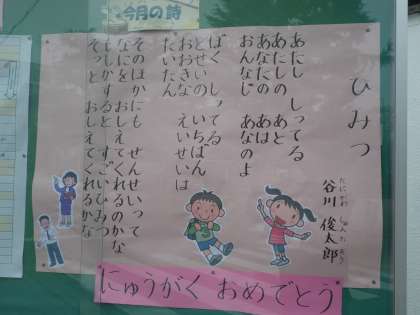 今月の詩
ひみつ
たにかわ しゅんたろう
谷川 俊太郎
あたし しってる
あたしの あと
あなたの あは
おんなじ あなのよ
ぼく しってる
どせいの いちばん
おおきな えいせいは
たいたん
そのほかにも せんせいって
なにを おしえてくれるのかな
もしかすると すごいひみつ
そっと おしえてくれるかな
にゅうがく おめでとう